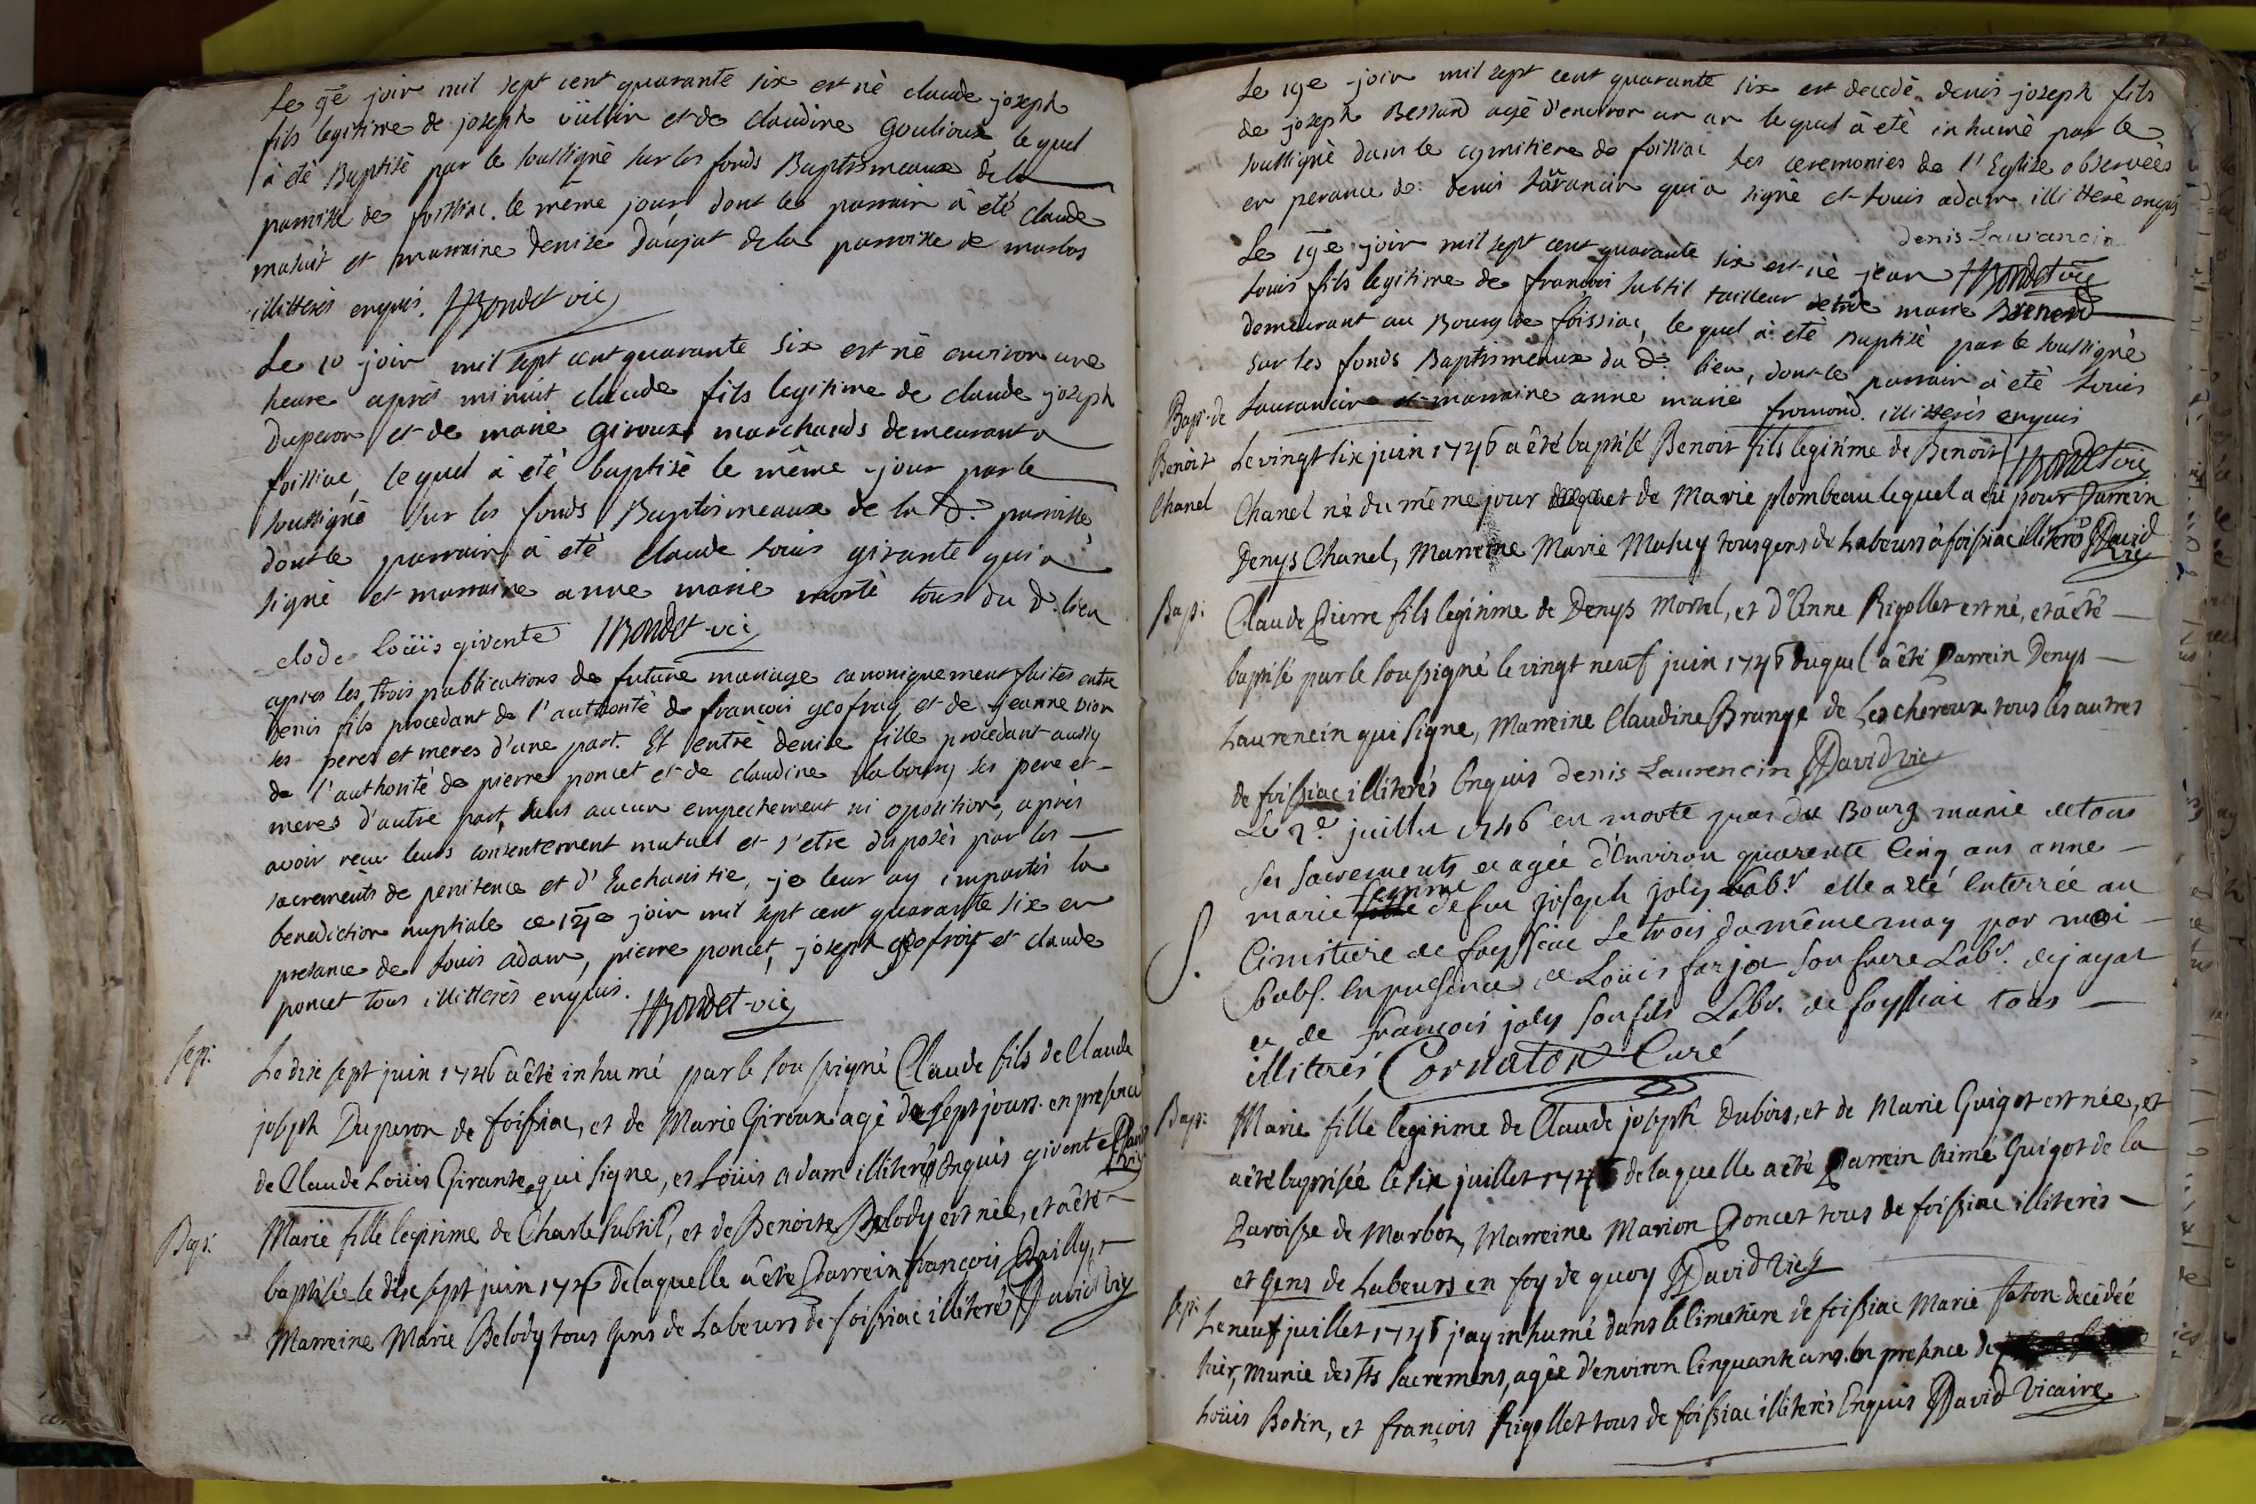 Le 9e join mil sept cent quarante six est nè claude joseph
fils legitime de joseph vüllin et de claudine goulioux, le quel
à étè Baptisè par le soussignè sur les fonds Baptismeaux de la
parroisse de foissiac. le même jour dont les parrain à été claude
et marraine denise daujat de la parroisse de marbos
illitterès enquis. Bondet vic
Le 10 join mil sept cent quarante six est nè environ une
heure après minuit claude fils legitime de claude joseph
duperon et de marie giroux marchands demeurant a
foissiac lequel à etè baptisè le même jour par le
soussignè sur les fonds Baptismeaux de la d. parroisse
dont le parrain à etè claude louis girante qui a
signè et marraine anne marie morté tous du d. lieu
clode Loüis givente Bondet vic
apres les trois publications de future mariage canoniquement faites entre
denis fils procedant de l'authorité de françois geofray et de jeanne vion
ses peres et meres d'une part. Et entre denise fille procedant aussy
de l'authorité de pierre poncet et de claudine labourg ses pere et
meres d'autre part, sans aucun empechement ni oposition, après
avoir reçu leurs consentement mutuel et s'etre disposès par les
sacremènts de penitence et d'Euchauistie, je leur ay impartis la
benediction nuptiale ce join mil sept cent quarante six en
presance de louis adam, pierre poncet, joseph geofroy et claude
poncet tous illitterès enquis. Bondet vic
Sep:
Le dix sept juin 1746 a êtè inhumé par le soussigné Claude fils de Claude
joseph Duperon de foissiac, et de Marie Giroux agé de sept jours. en presence
de Claude Loüis Girante qui signe, et Loüis adam illiterés Enquis givente David vic
Bap:
Marie fille legitime de Charle subtil, et de Benoite Belody est née, et a êté
baptisée le dix sept juin 1746 de laquelle a êté Parrein françois Pailly, et
Marreine Marie Belody tous Gens de Labeurs de foissiac illiterés David vic
Le 19e join mil sept cent quarante six est decedè denis joseph fils
de joseph Bessard agè d'environ un an le quel à etè inhumè par le
soussignè dans le cymitiere de foissiac les ceremonies de l'Eglise observeès
en perance de denis laurancin qui a signè et louis adam illitterè enquis
denis Laurancin
Bondet vic
Le 19e join mil sept cent quarante six est nè jean
louis fils legitime de françois subtil tailleur et de marie Brenond
demeurant au Bourg de foissiac, le quel à etè Baptisè par le soussignè
sur les fonds Baptismeaux du d. lieu, dont le parrain à etè louis
laurancin et marraine anne marie fromond. illitterès enquis
Bondet vic
Bapt. de
Benoit
Chanel
Le vingt six juin 1746 a êté baptisé Benoit fils legitime de Benoit
Chanel né du même jour et de Marie plombeau lequel a eu pour Parrein
Denys Chanel, Marreine Marie Mahuy tous gens de Labeurs à foissiac illiterés David vic
Bap:
Claude Pierre fils legitime de Denys Morel, et d'Anne Rigollet est né, et a êté
baptisé par le soussigné le vingt neuf juin 1746 duquel a êté Parrein Denys
Laurencin qui signe, Marreine Claudine Brange de Lescheroux tous les autres
de foissiac illiterés Enquis denis Laurencin David vic
S.
Le 2e juillet 1746 est morte du Bourg munie de tous
ses sacrements et agée d'Environ quarente Cinq ans anne
marie femme de feu joseph joly Labr. elle a eté Enterrée au
Cimitiere de foyssiac Le trois du même may par moi
soubs. En presence de Loüis farjot son frere Labr. de jayat
et de françois joly son fils Labr. de foyssiac tous
illiterés Cornaton Curé
Bap:
Marie fille legitime de Claude joseph Dubois, et de Marie Guigot est née, et
a êté baptisée le six juillet 1746 de laquelle a êté Parrein Aimé Guigot de la
Paroisse de Marboz, Marreine Marion Poncet tous de foissiac illiterés
et gens de Labeurs en foy de quoy David vic
Sep:
Le neuf juillet 1746 j'ay inhumé dans le Cimetiere de foissiac Marie Faton decedée
hier, Munie des sts sacremens, agée d'environ Cinquante ans. En presence de
Loüis Bodin, et françois Rigollet tous de foissiac illiterés Enquis David Vicaire